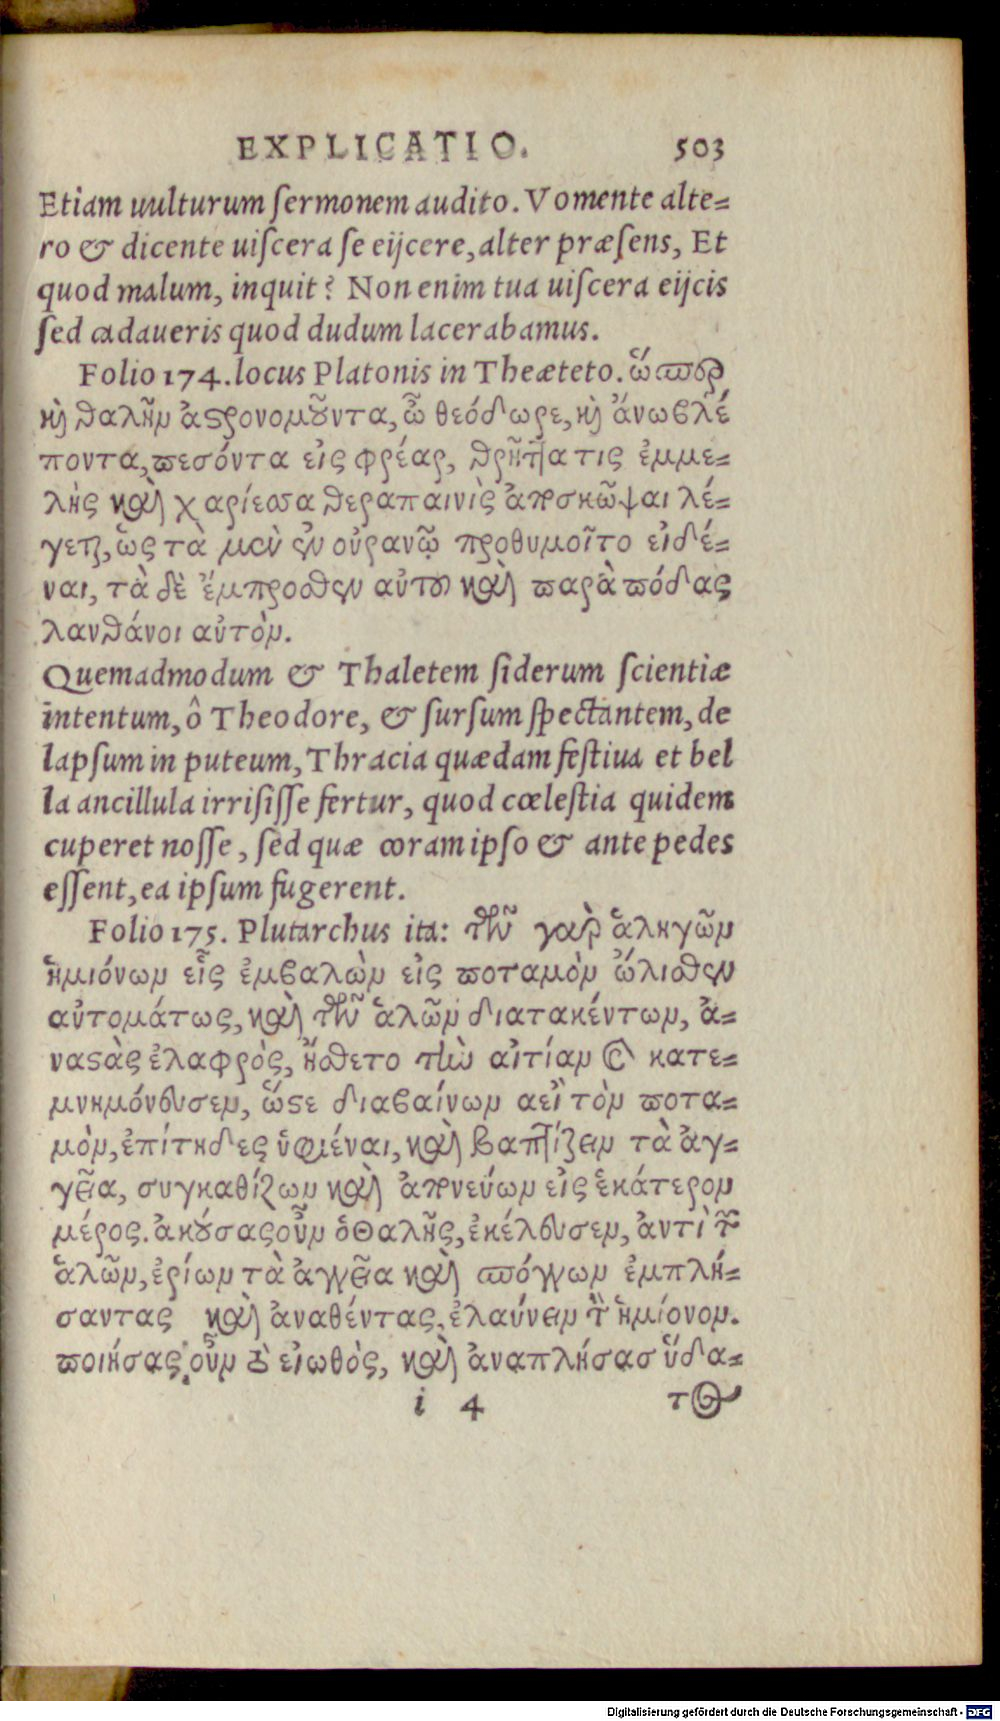 EXPLICATIO. 503
Etiam uulturum ſermonem audito. Vomente alte=
ro & dicente uiſcera ſe eijcere, alter præſens, Et
quod malum, inquit? Non enim tua uiſcera eijcis
ſed cadaueris quod dudum lacerabamus.
Folio 174. locus Platonis in Theæteto. ὥσπερ
κỳ θαλῆν ἀστρονομοῦντα, ὦ θεόδωρε, κỳ ἄνω βλέ
ποντα, πεσόντα εἰς φρέαρ, θρῆττα τις ἐμμε=
λὴς καὶ χαρίεσσα θεραπαινὶς ἀποσκῶψαι λέ=
γεται, ὡς τὰ μὲν ἐν οὐρανῷ προθυμοῖτο εἰδέ=
ναι, τὰ δὲ ἔμπροσθεν αὐτοῦ καὶ παρὰ πόδας
λανθάνοι αὐτὸν.
Quemadmodum & Thaletem ſiderum ſcientiæ
intentum, ô Theodore, & ſurſum ſpectantem, de
lapſum in puteum, Thracia quædam feſtiua et bel
la ancillula irriſiſſe fertur, quod cœleſtia quidem
cuperet noſſe, ſed quæ coram ipſo & ante pedes
eſſent, ea ipſum fugerent.
Folio 175. Plutarchus ita: τῶν γαρ ἁληγῶν
ἡμιόνων εἷς ἐμβαλὼν εἰς ποταμὸν ὤλισθεν
αὐτομάτως, καὶ τῶν ἁλῶν διατακέντων, ἀ=
ναστὰς ἐλαφρὸς, ἤσθετο τὴν αἰτίαν καὶ κατε=
μνημόνευσεν, ὥστε διαβαίνων αεὶ τὸν ποτα=
μὸν, ἐπίτηδες ὑφιέναι, καὶ βαπτίζειν τὰ ἀγ=
γεῖα, συγκαθίζων καὶ ἀπονεύων εἰς ἑκάτερον
μέρος. ἀκούσας οὖν ὁ Θαλῆς, ἐκέλευσεν, ἀντὶ τῶν
ἁλῶν, ἐρίων τὰ ἀγγεῖα καὶ σπόγγων ἐμπλή=
σαντας καὶ ἀναθέντας, ἐλαύνειν τὸν ἡμίονον.
ποιήσας οὖν τὸ εἰωθὸς, καὶ ἀναπλήσας ὕδα=
i 4 τος
Digitalisierung gefördert durch die Deutsche Forschungsgemeinschaft - DFG